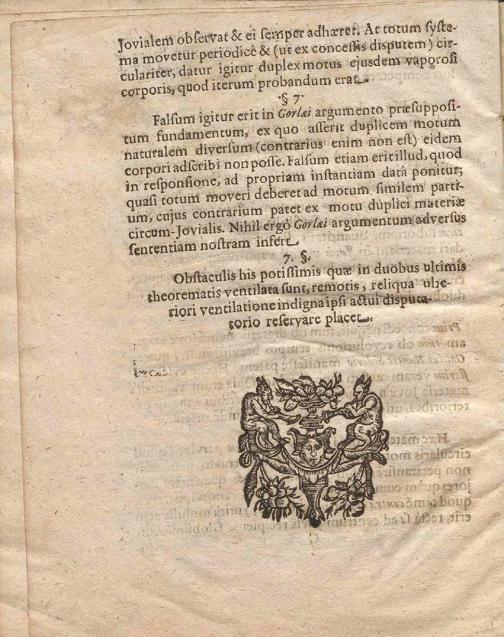 Jovialem observat & ei semper adhæret. At totum syste-
ma movetur periodicè & (ut ex concessis disputem) cir-
culariter; datur igitur duplex motus ejusdem vaporosi
corporis, quod iterum probandum erat.
§ 7.
Falsum igitur erit in Gorlæi argumento præsupposi-
tum fundamentum, ex quo asserit duplicem motum
naturalem diversum (contrarius enim non est) eidem
corpori adscribi non posse. Falsum etiam erit illud, quod
in responsione, ad propriam instantiam datâ ponitur;
quasi totum moveri deberet ad motum similem parti-
um, cujus contrarium patet ex motu duplici materiæ
circum-Jovialis. Nihil ergò Gorlæi argumentum adversus
sententiam nostram infert.
7. §.
Obstaculis his potissimis quæ in duobus ultimis
theorematis ventilata sunt, remotis, reliqua ulte-
riori ventilatione indigna ipsi actui disputa-
torio reservare placet.